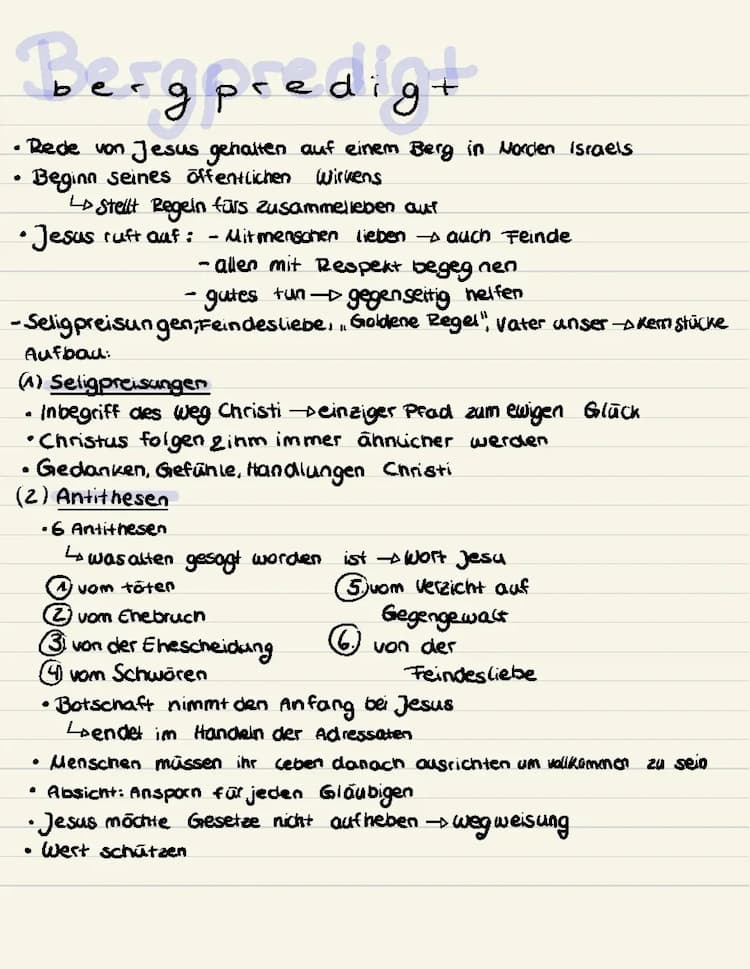 Bergpredigt
bergpredigt
• Rede von Jesus gehalten auf einem Berg in Norden Israels
• Beginn seines öffentlichen Wirkens
↳ stellt Regeln fürs zusammenleben auf
• Jesus ruft auf: - Mitmenschen lieben → auch Feinde
- allen mit Respekt begegnen
- gutes tun → gegenseitig helfen
- Seligpreisungen, Feindesliebe, „Goldene Regel", Vater unser → Kernstücke
Aufbau:
(1) Seligpreisungen
• Inbegriff des Weg Christi → einziger Pfad zum ewigen Glück
• Christus folgen & ihm immer ähnlicher werden
• Gedanken, Gefühle, Handlungen Christi
(2) Antithesen
• 6 Antithesen
↳ was alten gesagt worden ist → Wort Jesu
① vom töten ⑤ vom Verzicht auf
② vom Ehebruch Gegengewalt
③ von der Ehescheidung ⑥ von der
④ vom Schwören Feindesliebe
• Botschaft nimmt den Anfang bei Jesus
↳ endet im Handeln der Adressaten
• Menschen müssen ihr Leben danach ausrichten um vollkommen zu sein
• Absicht: Ansporn für jeden Gläubigen
• Jesus möchte Gesetze nicht aufheben → wegweisung
• Wert schützen